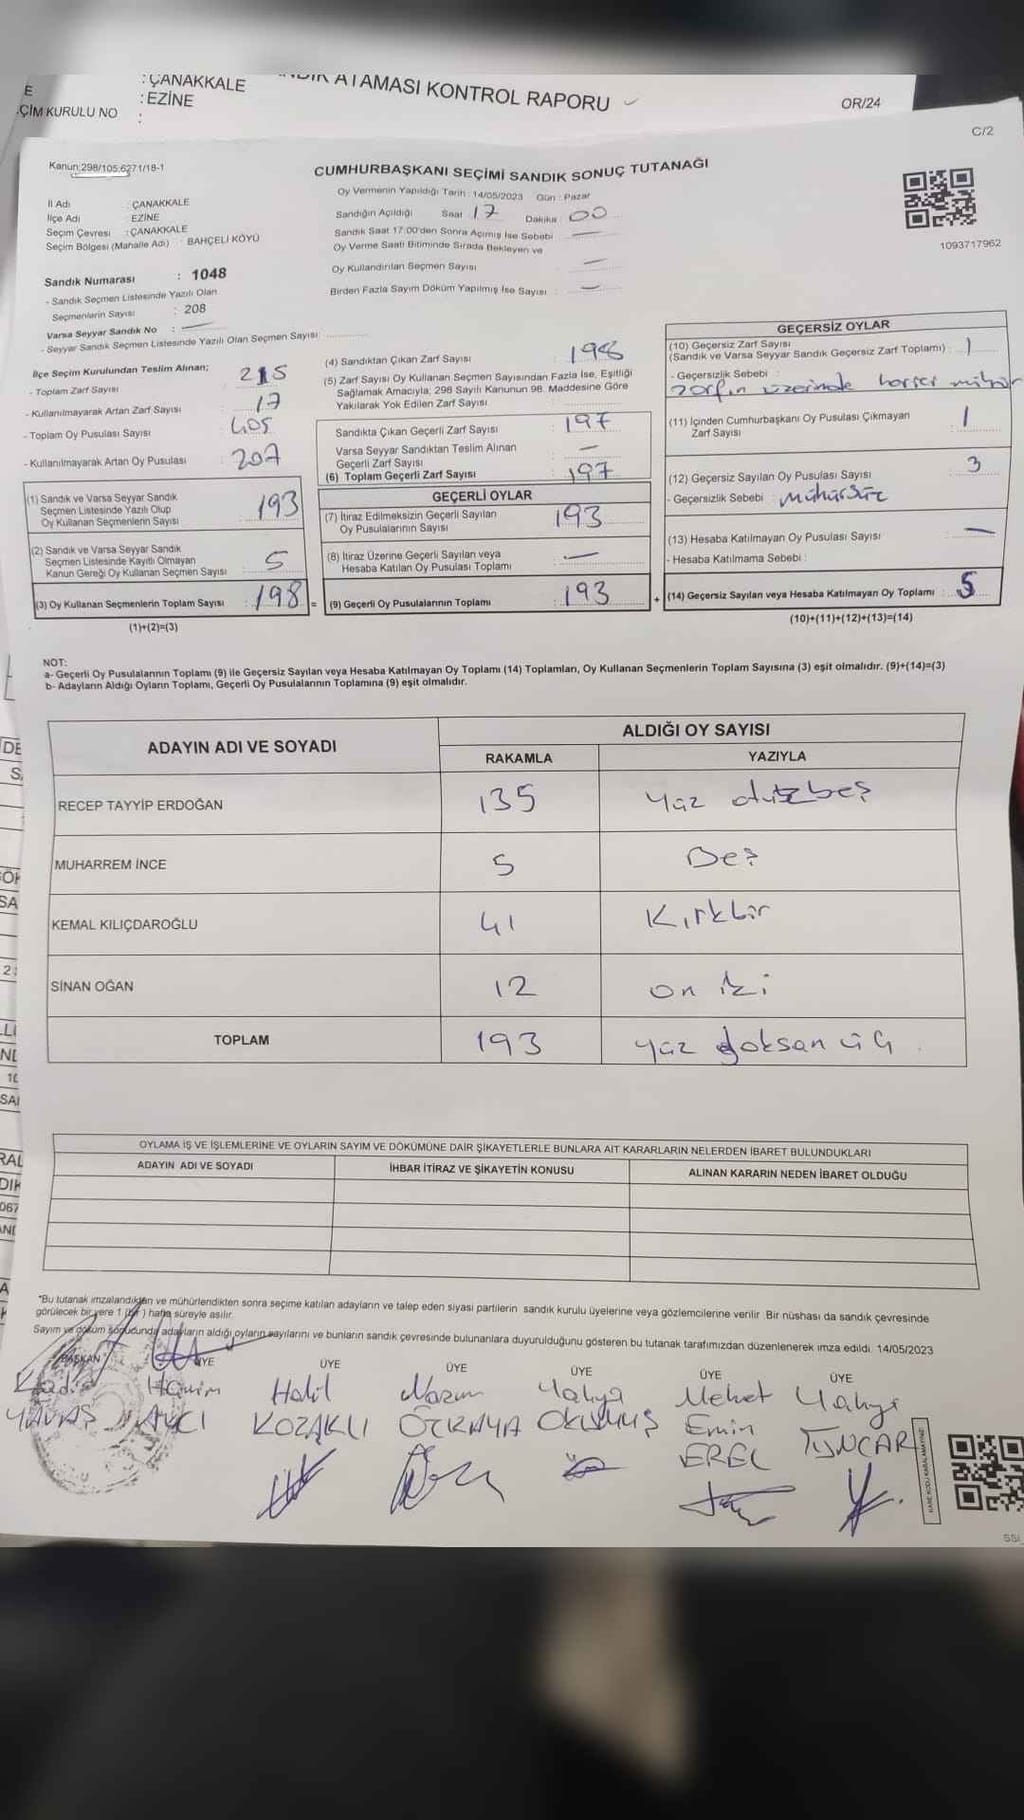 : ÇANAKKALE
ATAMASI KONTROL RAPORU
: EZİNE
OR/24
ÇİM KURULU NO :
C/2
Kanun:298/105,6271/18-1
CUMHURBAŞKANI SEÇİMİ SANDIK SONUÇ TUTANAĞI
1093717962
İl Adı : ÇANAKKALE
İlçe Adı : EZİNE
Seçim Çevresi : ÇANAKKALE
Seçim Bölgesi (Mahalle Adı) : BAHÇELİ KÖYÜ
Oy Vermenin Yapıldığı Tarih : 14/05/2023 Gün : Pazar
Sandığın Açıldığı Saat 17 Dakika : 00
Sandık Saat 17:00'den Sonra Açımış İse Sebebi
Oy Verme Saati Bitiminde Sırada Bekleyen ve
Oy Kullandırılan Seçmen Sayısı —
Birden Fazla Sayım Döküm Yapılmış İse Sayısı : —
Sandık Numarası : 1048
- Sandık Seçmen Listesinde Yazılı Olan
Seçmenlerin Sayısı : 208
Varsa Seyyar Sandık No : —
- Seyyar Sandık Seçmen Listesinde Yazılı Olan Seçmen Sayısı :
İlçe Seçim Kurulundan Teslim Alınan;
- Toplam Zarf Sayısı : 215
- Kullanılmayarak Artan Zarf Sayısı : 17
- Toplam Oy Pusulası Sayısı : 405
- Kullanılmayarak Artan Oy Pusulası : 207
(1) Sandık ve Varsa Seyyar Sandık
Seçmen Listesinde Yazılı Olup
Oy Kullanan Seçmenlerin Sayısı : 193
(2) Sandık ve Varsa Seyyar Sandık
Seçmen Listesinde Kayıtlı Olmayan
Kanun Gereği Oy Kullanan Seçmen Sayısı : 5
(3) Oy Kullanan Seçmenlerin Toplam Sayısı : 198 =
(1)+(2)=(3)
(4) Sandıktan Çıkan Zarf Sayısı : 198
(5) Zarf Sayısı Oy Kullanan Seçmen Sayısından Fazla İse, Eşitliği
Sağlamak Amacıyla; 298 Sayılı Kanunun 98. Maddesine Göre
Yakılarak Yok Edilen Zarf Sayısı :
Sandıkta Çıkan Geçerli Zarf Sayısı : 197
Varsa Seyyar Sandıktan Teslim Alınan
Geçerli Zarf Sayısı : —
(6) Toplam Geçerli Zarf Sayısı : 197
GEÇERLİ OYLAR
(7) İtiraz Edilmeksizin Geçerli Sayılan
Oy Pusulalarının Sayısı : 193
(8) İtiraz Üzerine Geçerli Sayılan veya
Hesaba Katılan Oy Pusulası Toplamı : —
(9) Geçerli Oy Pusulalarının Toplamı : 193 +
GEÇERSİZ OYLAR
(10) Geçersiz Zarf Sayısı
(Sandık ve Varsa Seyyar Sandık Geçersiz Zarf Toplamı) : 1
- Geçersizlik Sebebi :
zarfın üzerinde harici mühür
(11) İçinden Cumhurbaşkanı Oy Pusulası Çıkmayan
Zarf Sayısı : 1
(12) Geçersiz Sayılan Oy Pusulası Sayısı : 3
- Geçersizlik Sebebi : Mühürsüz
(13) Hesaba Katılmayan Oy Pusulası Sayısı : —
- Hesaba Katılmama Sebebi :
(14) Geçersiz Sayılan veya Hesaba Katılmayan Oy Toplamı : 5
(10)+(11)+(12)+(13)=(14)
NOT:
a- Geçerli Oy Pusulalarının Toplamı (9) ile Geçersiz Sayılan veya Hesaba Katılmayan Oy Toplamı (14) Toplamları, Oy Kullanan Seçmenlerin Toplam Sayısına (3) eşit olmalıdır. (9)+(14)=(3)
b- Adayların Aldığı Oyların Toplamı, Geçerli Oy Pusulalarının Toplamına (9) eşit olmalıdır.
ADAYIN ADI VE SOYADI ALDIĞI OY SAYISI
RAKAMLA YAZIYLA
RECEP TAYYİP ERDOĞAN 135 Yüz otuzbeş
MUHARREM İNCE 5 Beş
KEMAL KILIÇDAROĞLU 41 Kırkbir
SİNAN OĞAN 12 on iki
TOPLAM 193 yüz doksan üç
OYLAMA İŞ VE İŞLEMLERİNE VE OYLARIN SAYIM VE DÖKÜMÜNE DAİR ŞİKAYETLERLE BUNLARA AİT KARARLARIN NELERDEN İBARET BULUNDUKLARI
ADAYIN ADI VE SOYADI İHBAR İTİRAZ VE ŞİKAYETİN KONUSU ALINAN KARARIN NEDEN İBARET OLDUĞU
*Bu tutanak imzalandıktan ve mühürlendikten sonra seçime katılan adayların ve talep eden siyasi partilerin sandık kurulu üyelerine veya gözlemcilerine verilir. Bir nüshası da sandık çevresinde
görülecek bir yere 1 (bir) hafta süreyle asılır.
Sayım ve döküm sonucunda adayların aldığı oyların sayılarını ve bunların sandık çevresinde bulunanlara duyurulduğunu gösteren bu tutanak tarafımızdan düzenlenerek imza edildi. 14/05/2023
BAŞKAN ÜYE ÜYE ÜYE ÜYE ÜYE ÜYE
Halil Nazım Yahya Mehmet Yahya
YAVAŞ AVCI KOZAKLI ÖZKAYA OKUMUŞ Emin TUNCAR
EREL
KARE KODU KARALAMAYINIZ